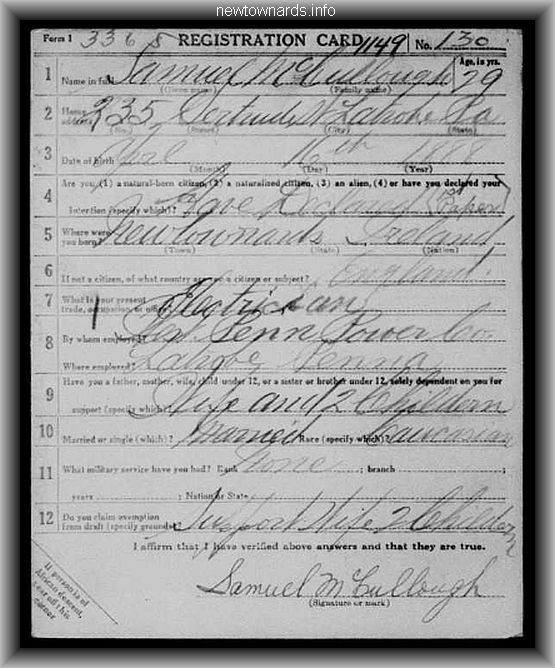 newtownards.info
Form 1 3368 REGISTRATION CARD 1149 No. 130
1 Name in full Samuel McCullough Age, in yrs. 29
(Given name) (Family name)
2 Home address 235 Gertrude St Latrobe Pa
(No.) (Street) (City) (State)
3 Date of birth April 16th 1888
(Month) (Day) (Year)
4 Are you (1) a natural-born citizen, (2) a naturalized citizen, (3) an alien, (4) or have you declared your
intention (specify which)? Have Declared (1st Paper)
5 Where were you born? Newtownards Ireland
(Town) (State) (Nation)
6 If not a citizen, of what country are you a citizen or subject? England
7 What is your present trade, occupation, or office? Electrician
8 By whom employed? West Penn Power Co
Where employed? Latrobe, Penna
9 Have you a father, mother, wife, child under 12, or a sister or brother under 12, solely dependent on you for
support (specify which)? Wife and 2 Childern
10 Married or single (which)? Married Race (specify which)? Caucasian
11 What military service have you had? Rank None ; branch ;
years ; Nation or State
12 Do you claim exemption from draft (specify grounds)? Support Wife 2 Childern
I affirm that I have verified above answers and that they are true.
Samuel McCullough
(Signature or mark)
If person is of
African descent,
tear off this
corner